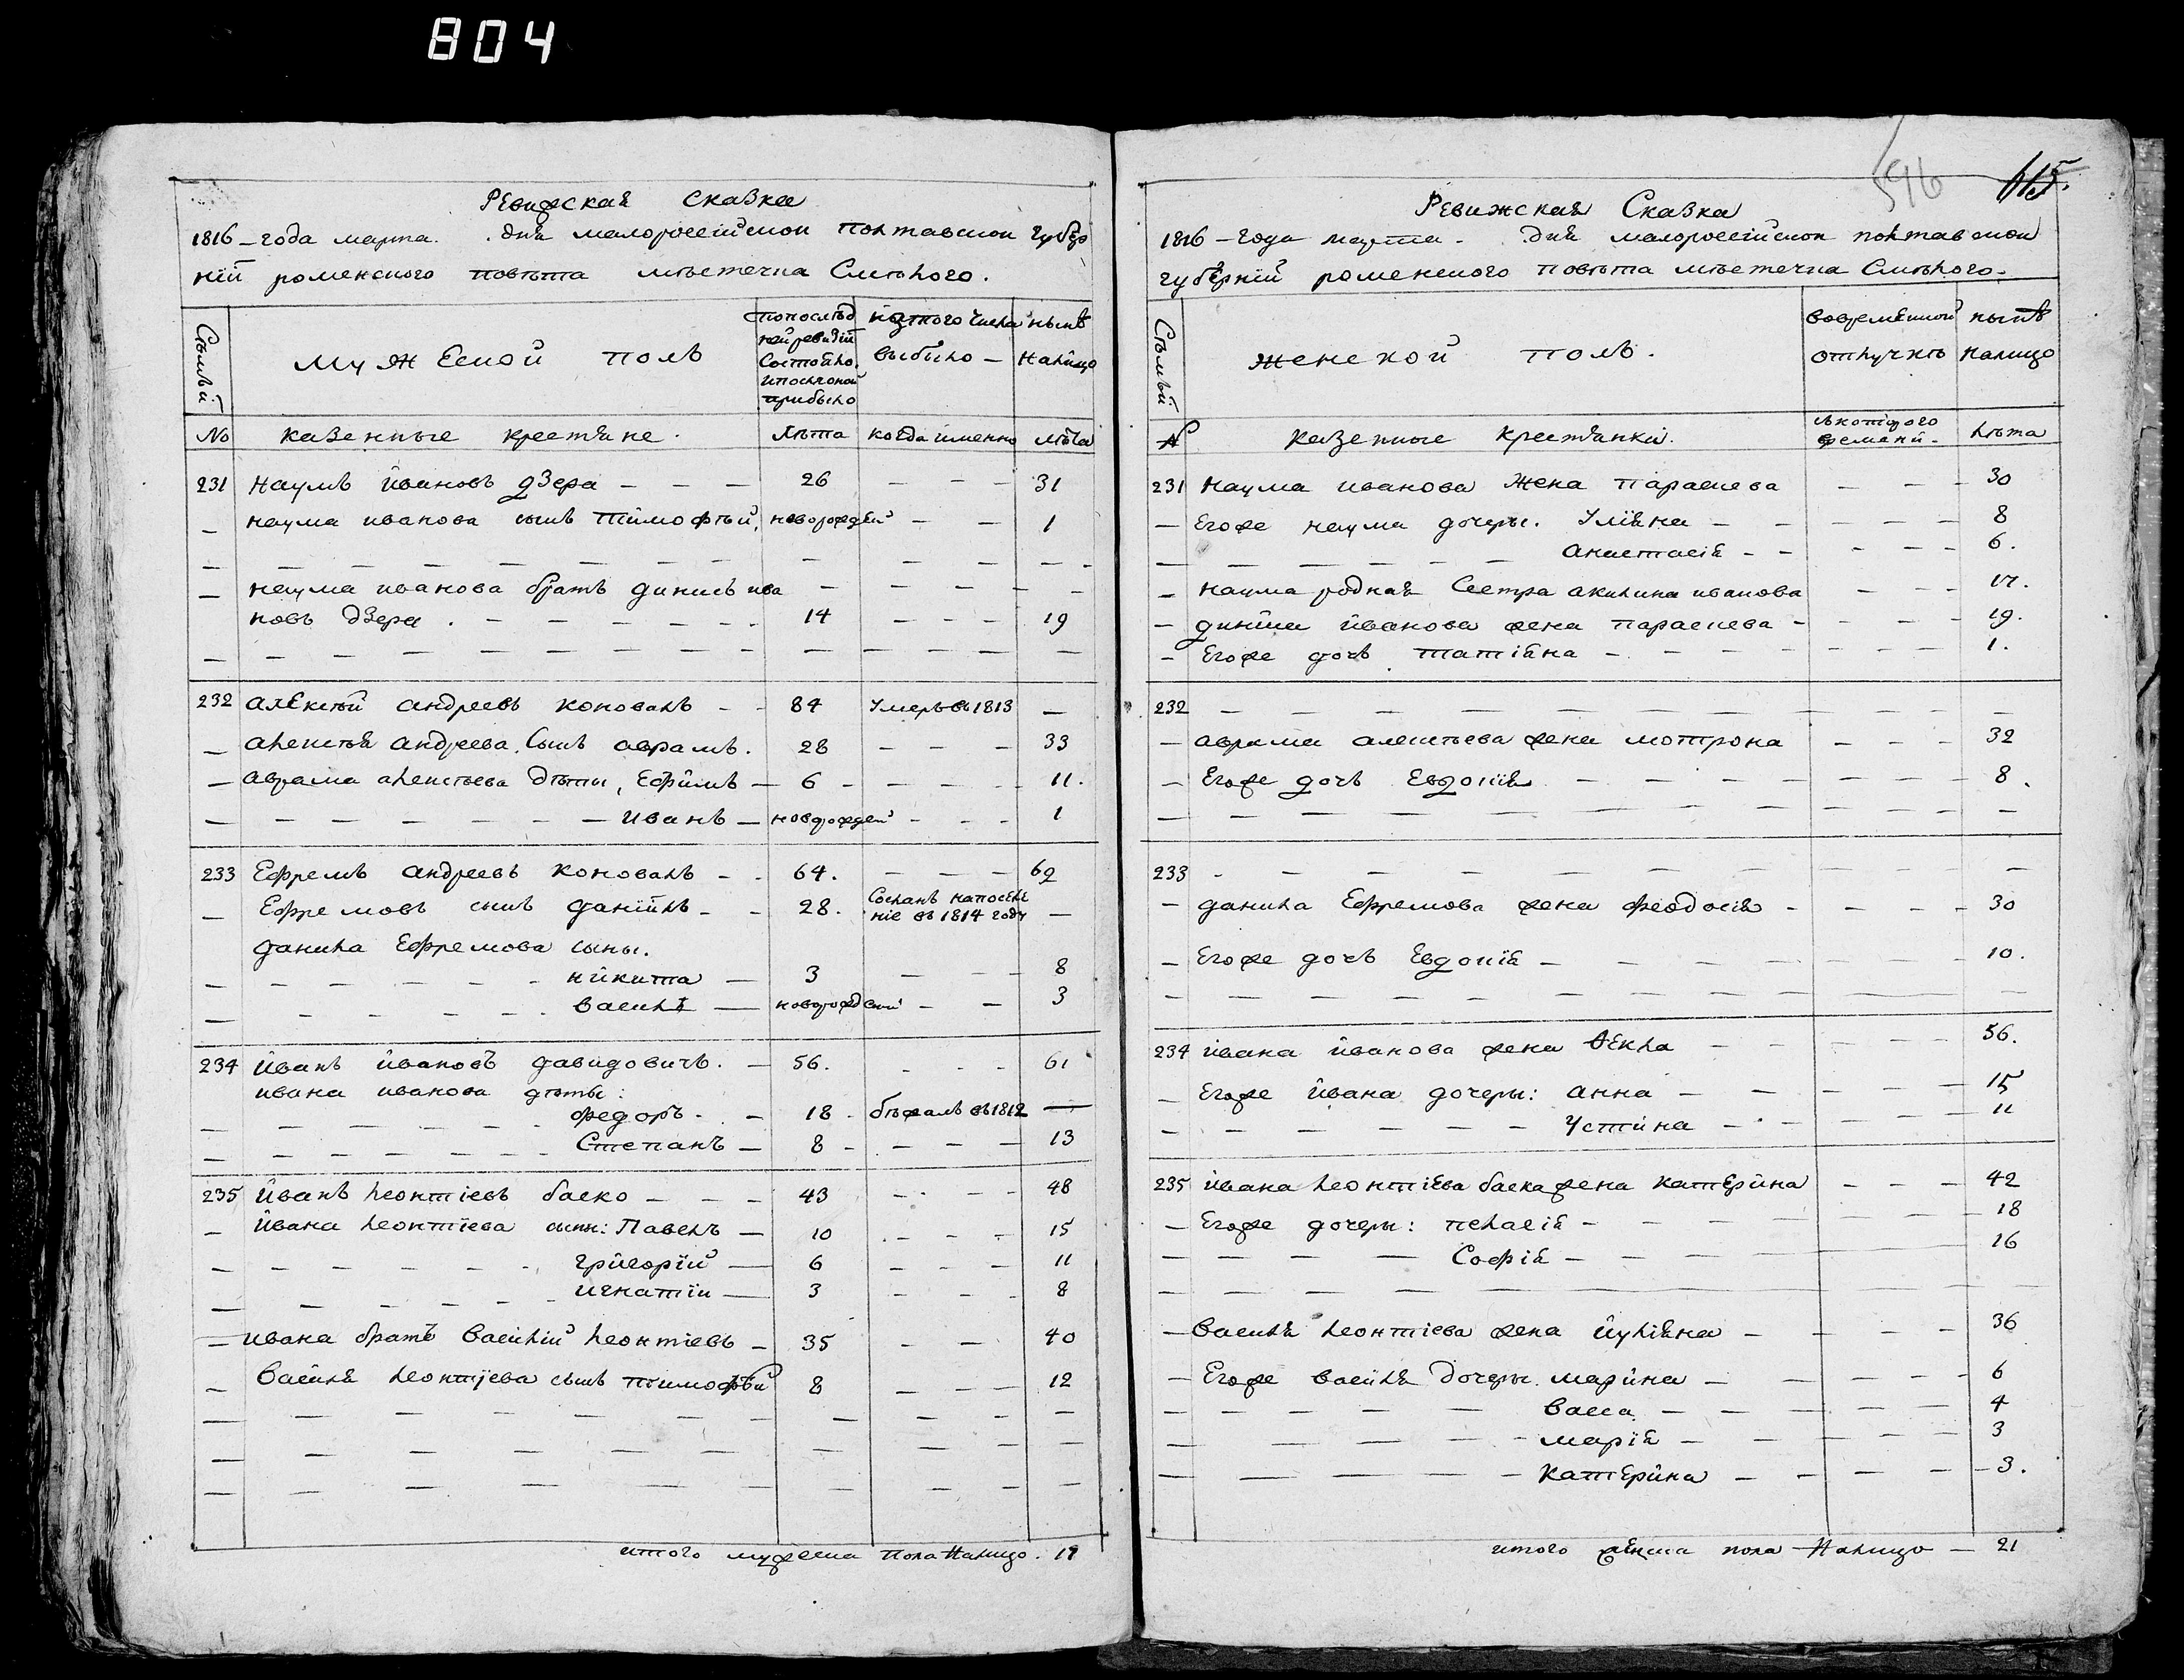 804
Ревижская сказка
1816 – года марта . дня малоросеійской полтавской губер
нїй роменского повѣта мѣстечка Смѣлого.
Сѣмьй
Мужеской полъ
попослѣд
ней ревизїй
Состояло
ипослѣоной
прибыло
изтого числа
выбыло –
нынѣ
налицо
№ казенные крестяне. лѣта когда именно лѣта
231 Наумъ ивановъ дзера – – – 26 – – – 31
– наума иванова сынъ тимофѣй, новорожденй – – 1
– наума иванова братъ динисъ ива
новъ дзера . – – – – 14 – – – 19
232 алексѣй андреевъ коновалъ – – 84 умеръ въ 1813 –
– алексѣя андреева сынъ аврамъ. 28 – – – 33
– аврама алексѣева дѣти, Ефимъ – 6 – – – – 11.
– – – – – – – иванъ – новорожденй – – – 1
233 Ефремъ андреевъ коновалъ – – 64. – – – 69
– Ефремовъ сынъ данїилъ – – 28. Сосланъ напоселе
ніе въ 1814 году –
данила Ефремова сыны.
– – – – – – – никита – 3 – – – 8
– – – – – – – василь – новорожденй – – 3
234 иванъ ивановъ давидовичъ. – 56. – – – 61
ивана иванова дѣты:
– – – – – – федоръ. – 18 . бѣжалъ въ 1812 –
– – – – – – – Степанъ – 8 – – – – 13
235 иванъ леонтіевъ баско – – – 43 – – – 48
– ивана леонтїева сыны: Павелъ – 10 – – – 15
– – – – – – – григорїй – 6 – – – 11
– – – – – – – игнатїи – 3 – – – 8
– ивана братъ василій леонтіевъ – 35 – – 40
– василя леонтіева сынъ тимофѣй 8 – – – 12
итого мужеска пола налицо. 19
596
615.
Ревижская Сказка
1816 – года марта – дня малоросеійской полтавской
губернїй роменского повѣта мѣстечка Смѣлого.
Сѣмьй
женской полъ.
вовременной
отлучкѣ
нынѣ
налицо
№ казенные крестянки.
съкоторого
времени –
лѣта
231 наума иванова жена параскева – – – 30
– Егоже наума дочеры. Улїяна – – – – – 8
– – – – – – анастасїя – – – – – 6.
– наума родная сестра акилина иванова – – – 17.
– диниса иванова жена параскева – – – – 19.
– Егоже дочь татіяна – – – – – – – 1.
232 – – – – – – – – – – –
– аврама алексѣева жена мотрона – – – 32
– Егоже дочь Евдокїя – – – – – – 8.
233 – – – – – – – – – – –
– данила Ефремова жена феодосія – – – – 30
– Егоже дочь Евдокїя – – – – – – – 10.
234 ивана иванова жена ѳекла – – – – – 56.
– Егоже ивана дочеры: анна – – – – – 15
– – – – – – – Устина – – – – – 11
235 ивана леонтїева баска жена катерина – – – 42
– Егоже дочеры: пелагія – – – – – – – 18
– – – – – Софія – – – – 16
– василя леонтіева жена іуліяна – – – – 36
– Егоже василя дочеры. марина – – – – – 6
– – – – – – васса – – – – – – 4
– – – – – – марїя – – – – – 3
– – – – – катерина – – – – – 3.
итого женска пола налицо – 21